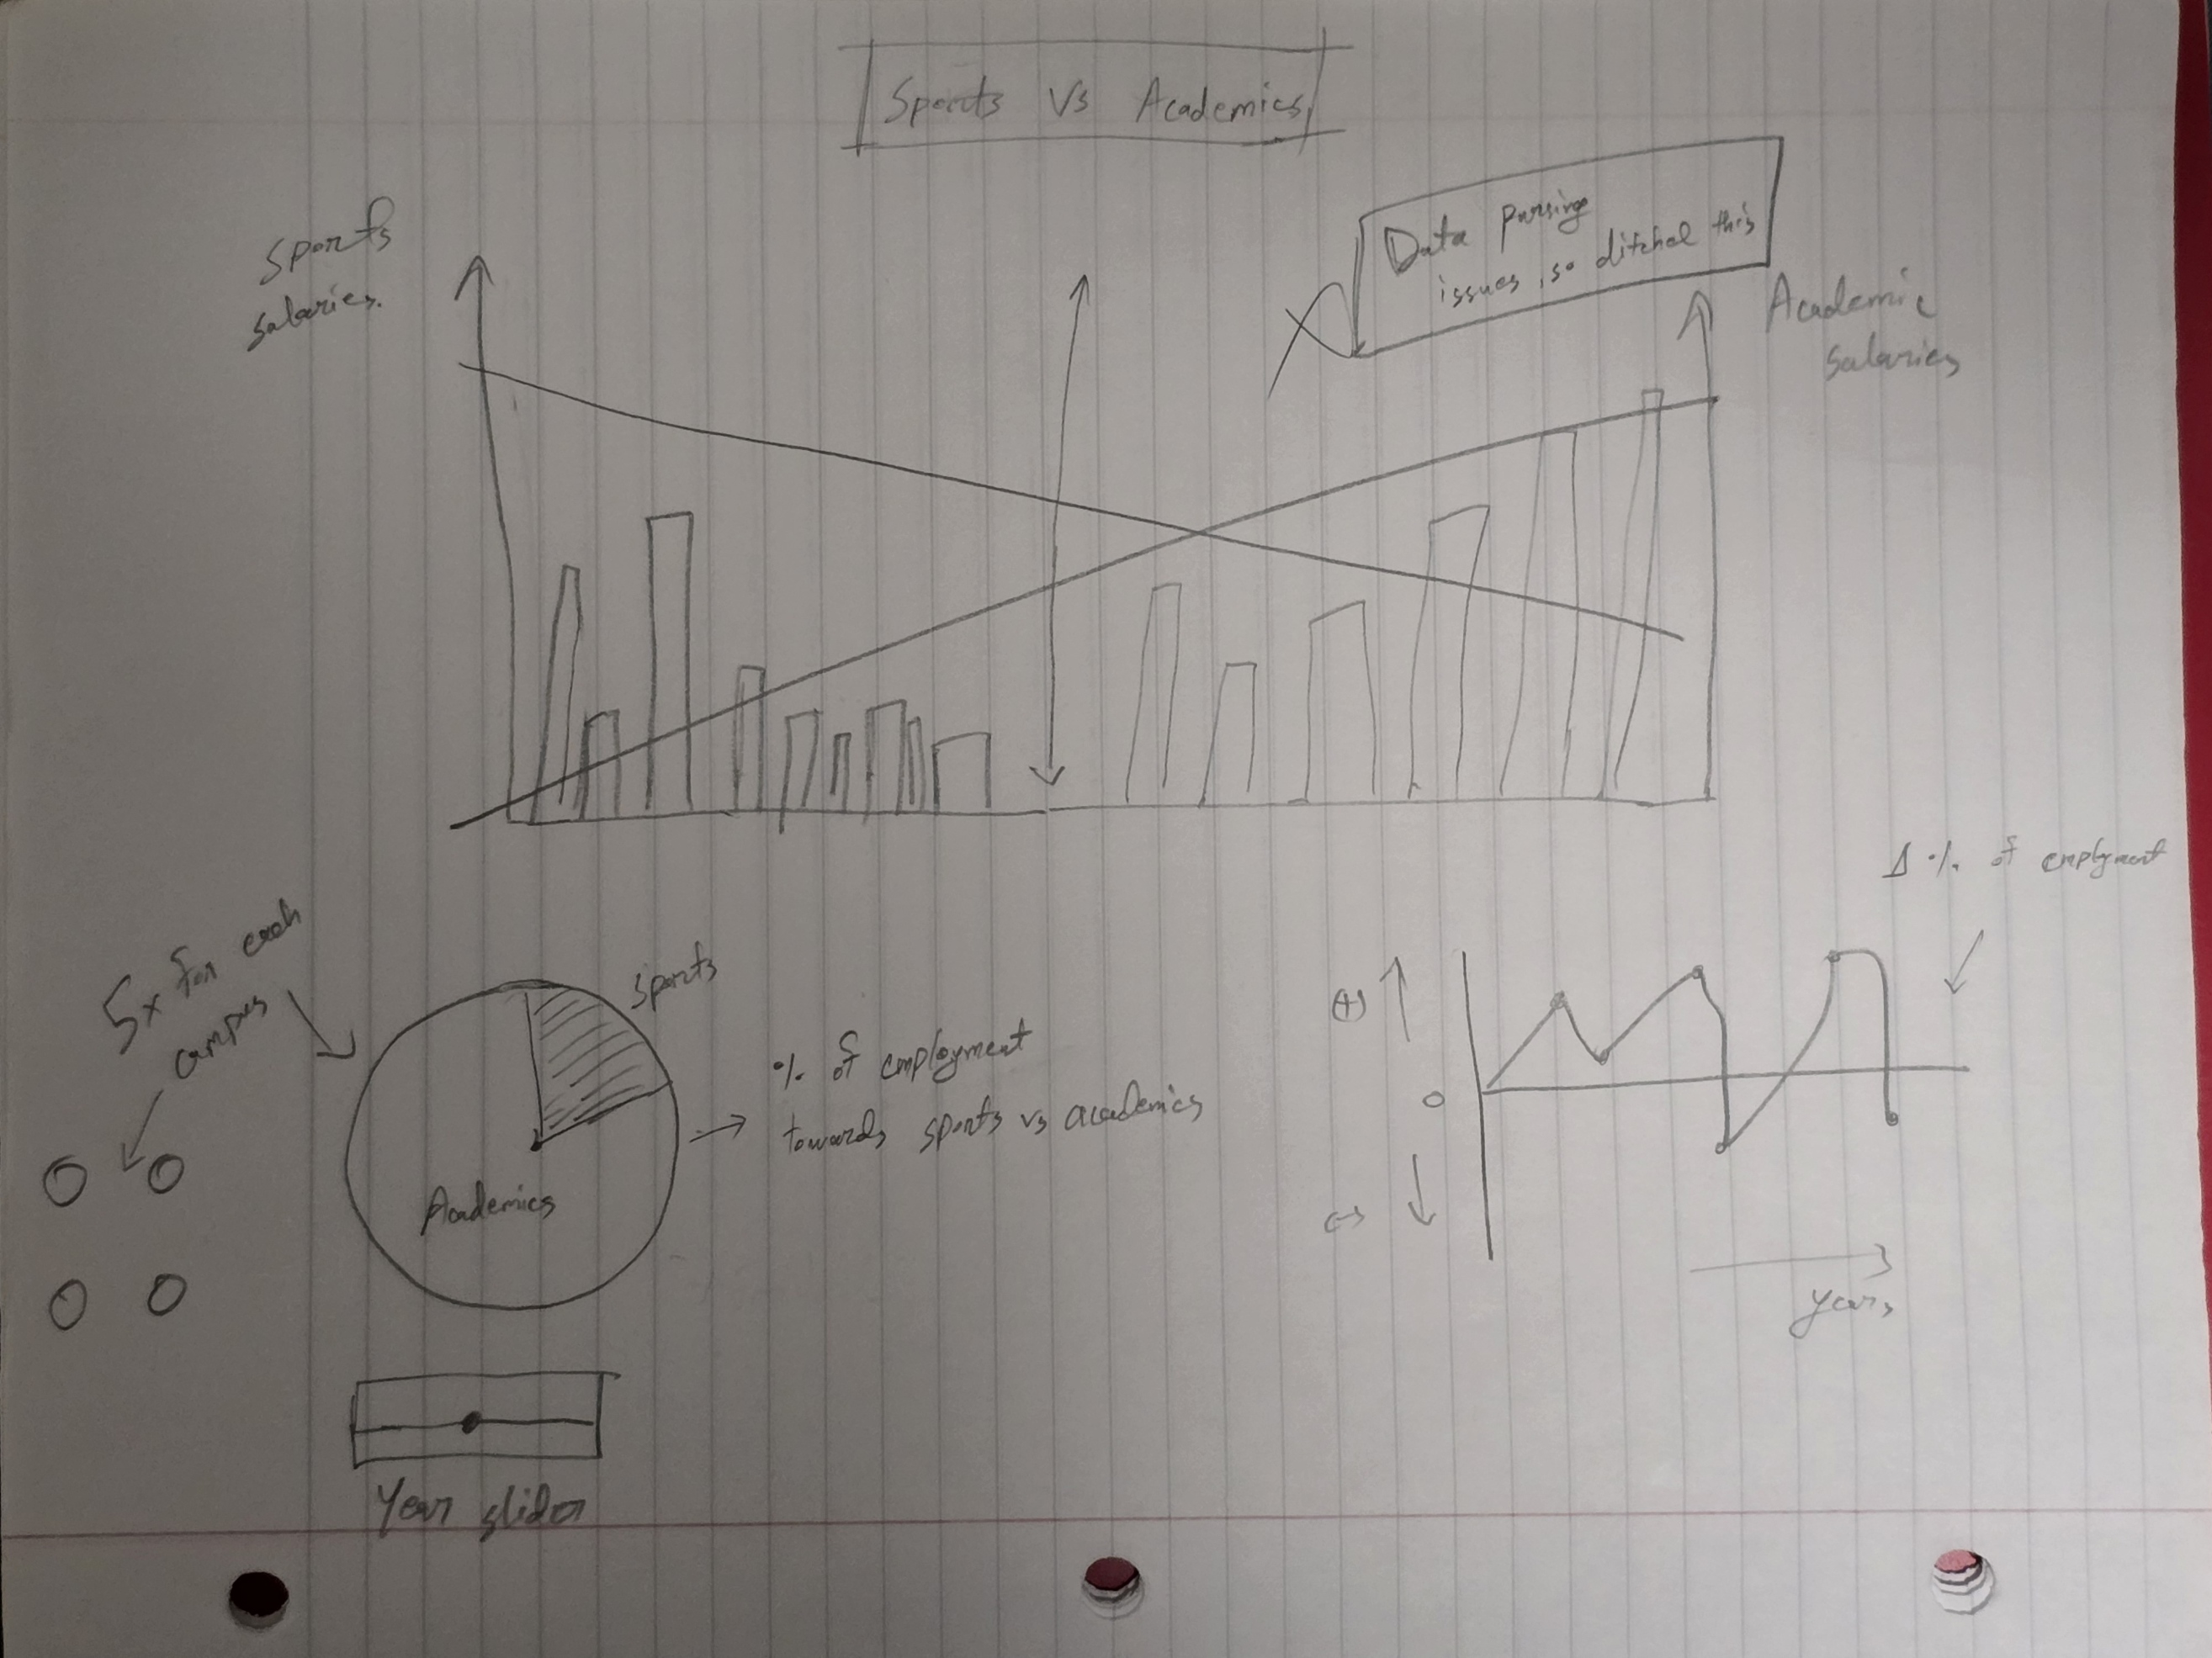 Sports Vs Academics
Sports
salaries.
Data parsing
issues, so ditched this
Academic
salaries
5x for each
campus
Sports
Academics
% of employment
towards sports vs academics
Δ % of employment
(+)
0
(-)
years
Year slider